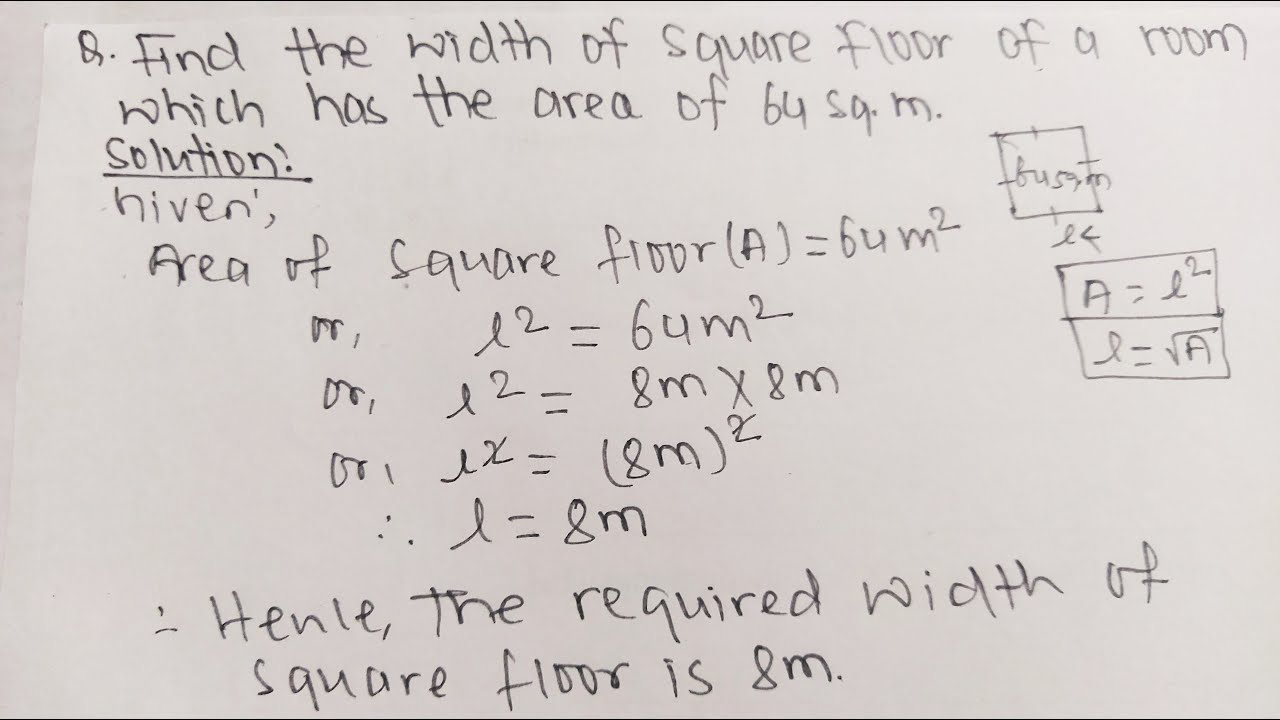 Q. Find the width of square floor of a room
which has the area of 64 sq.m.
Solution:
Given,
Area of square floor (A) = 64m²
or, l² = 64m²
or, l² = 8m × 8m
or, l² = (8m)²
∴ l = 8m
∴ Hence, The required width of
square floor is 8m.
64 sq.m
A = l²
l = √A